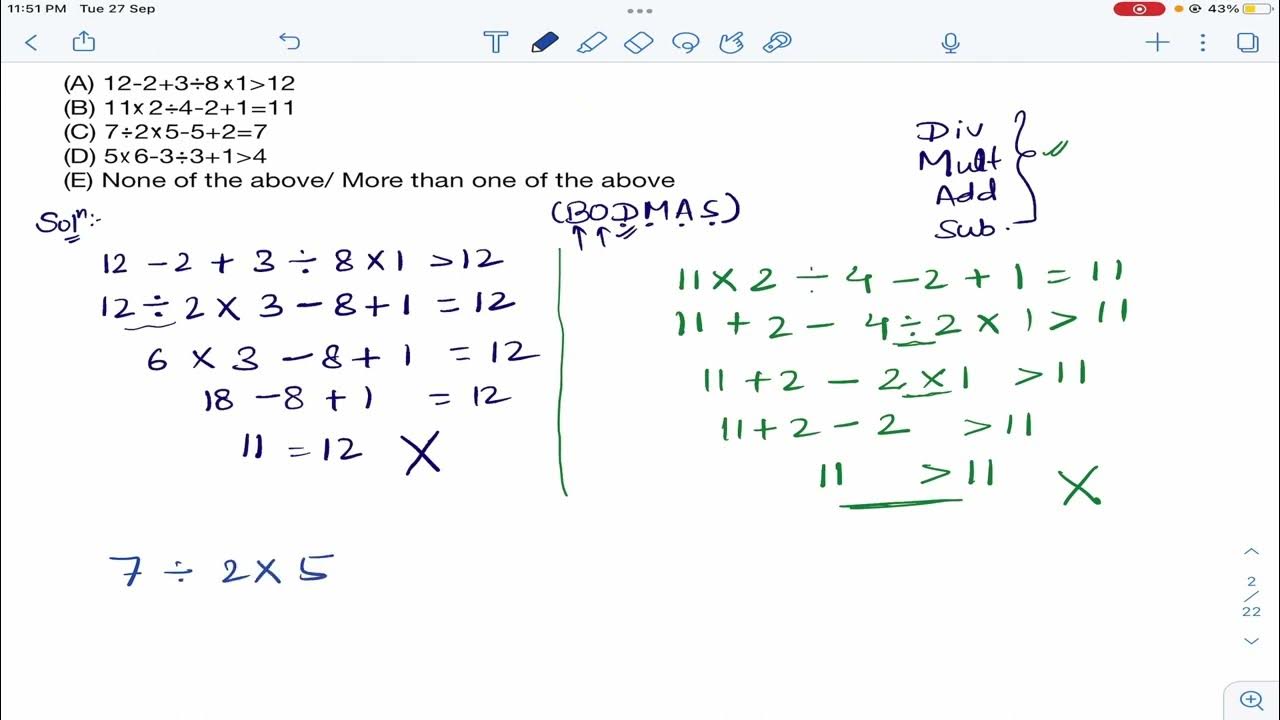 11:51 PM Tue 27 Sep
43%
(A) 12-2+3÷8×1>12
(B) 11×2÷4-2+1=11
(C) 7÷2×5-5+2=7
(D) 5×6-3÷3+1>4
(E) None of the above/ More than one of the above
Solⁿ:-
(BODMAS)
Div
Mult
Add
Sub.
12 - 2 + 3 ÷ 8 × 1 > 12
12 ÷ 2 × 3 - 8 + 1 = 12
6 × 3 - 8 + 1 = 12
18 - 8 + 1 = 12
11 = 12 X
11 × 2 ÷ 4 - 2 + 1 = 11
11 + 2 - 4 ÷ 2 × 1 > 11
11 + 2 - 2 × 1 > 11
11 + 2 - 2 > 11
11 > 11 X
7 ÷ 2 × 5
2
/
22